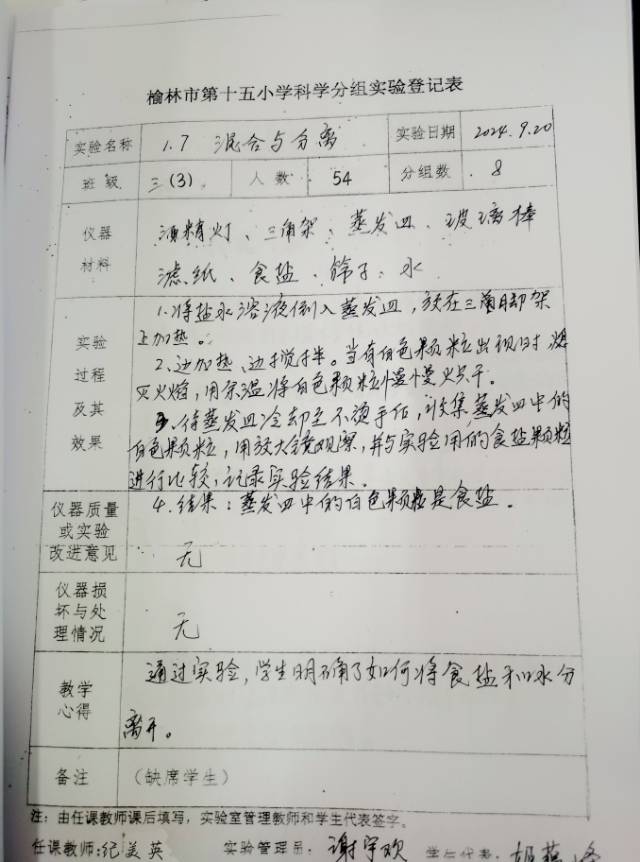 榆林市第十五小学科学分组实验登记表
实验名称 1.7 混合与分离 实验日期 2024.9.20
班级 三(3) 人数 54 分组数 8
仪器 酒精灯、三角架、蒸发皿、玻璃棒
材料 滤纸、食盐、筛子、水
实验过程及其效果
1.将盐水溶液倒入蒸发皿,放在三角脚架
上加热。
2、边加热、边搅拌。当有白色颗粒出现时熄
灭火焰,用余温将白色颗粒慢慢烘干。
3、待蒸发皿冷却至不烫手后,收集蒸发皿中的
白色颗粒,用放大镜观察,并与实验用的食盐颗粒
进行比较,记录实验结果。
4.结果:蒸发皿中的白色颗粒是食盐。
仪器质量
或实验
改进意见 无
仪器损
坏与处
理情况 无
教学
心得
通过实验,学生明确了如何将食盐和水分
离开。
备注 (缺席学生)
注:由任课教师课后填写,实验室管理教师和学生代表签字。
任课教师:纪美英 实验管理员:谢宇欢 学生代表:胡